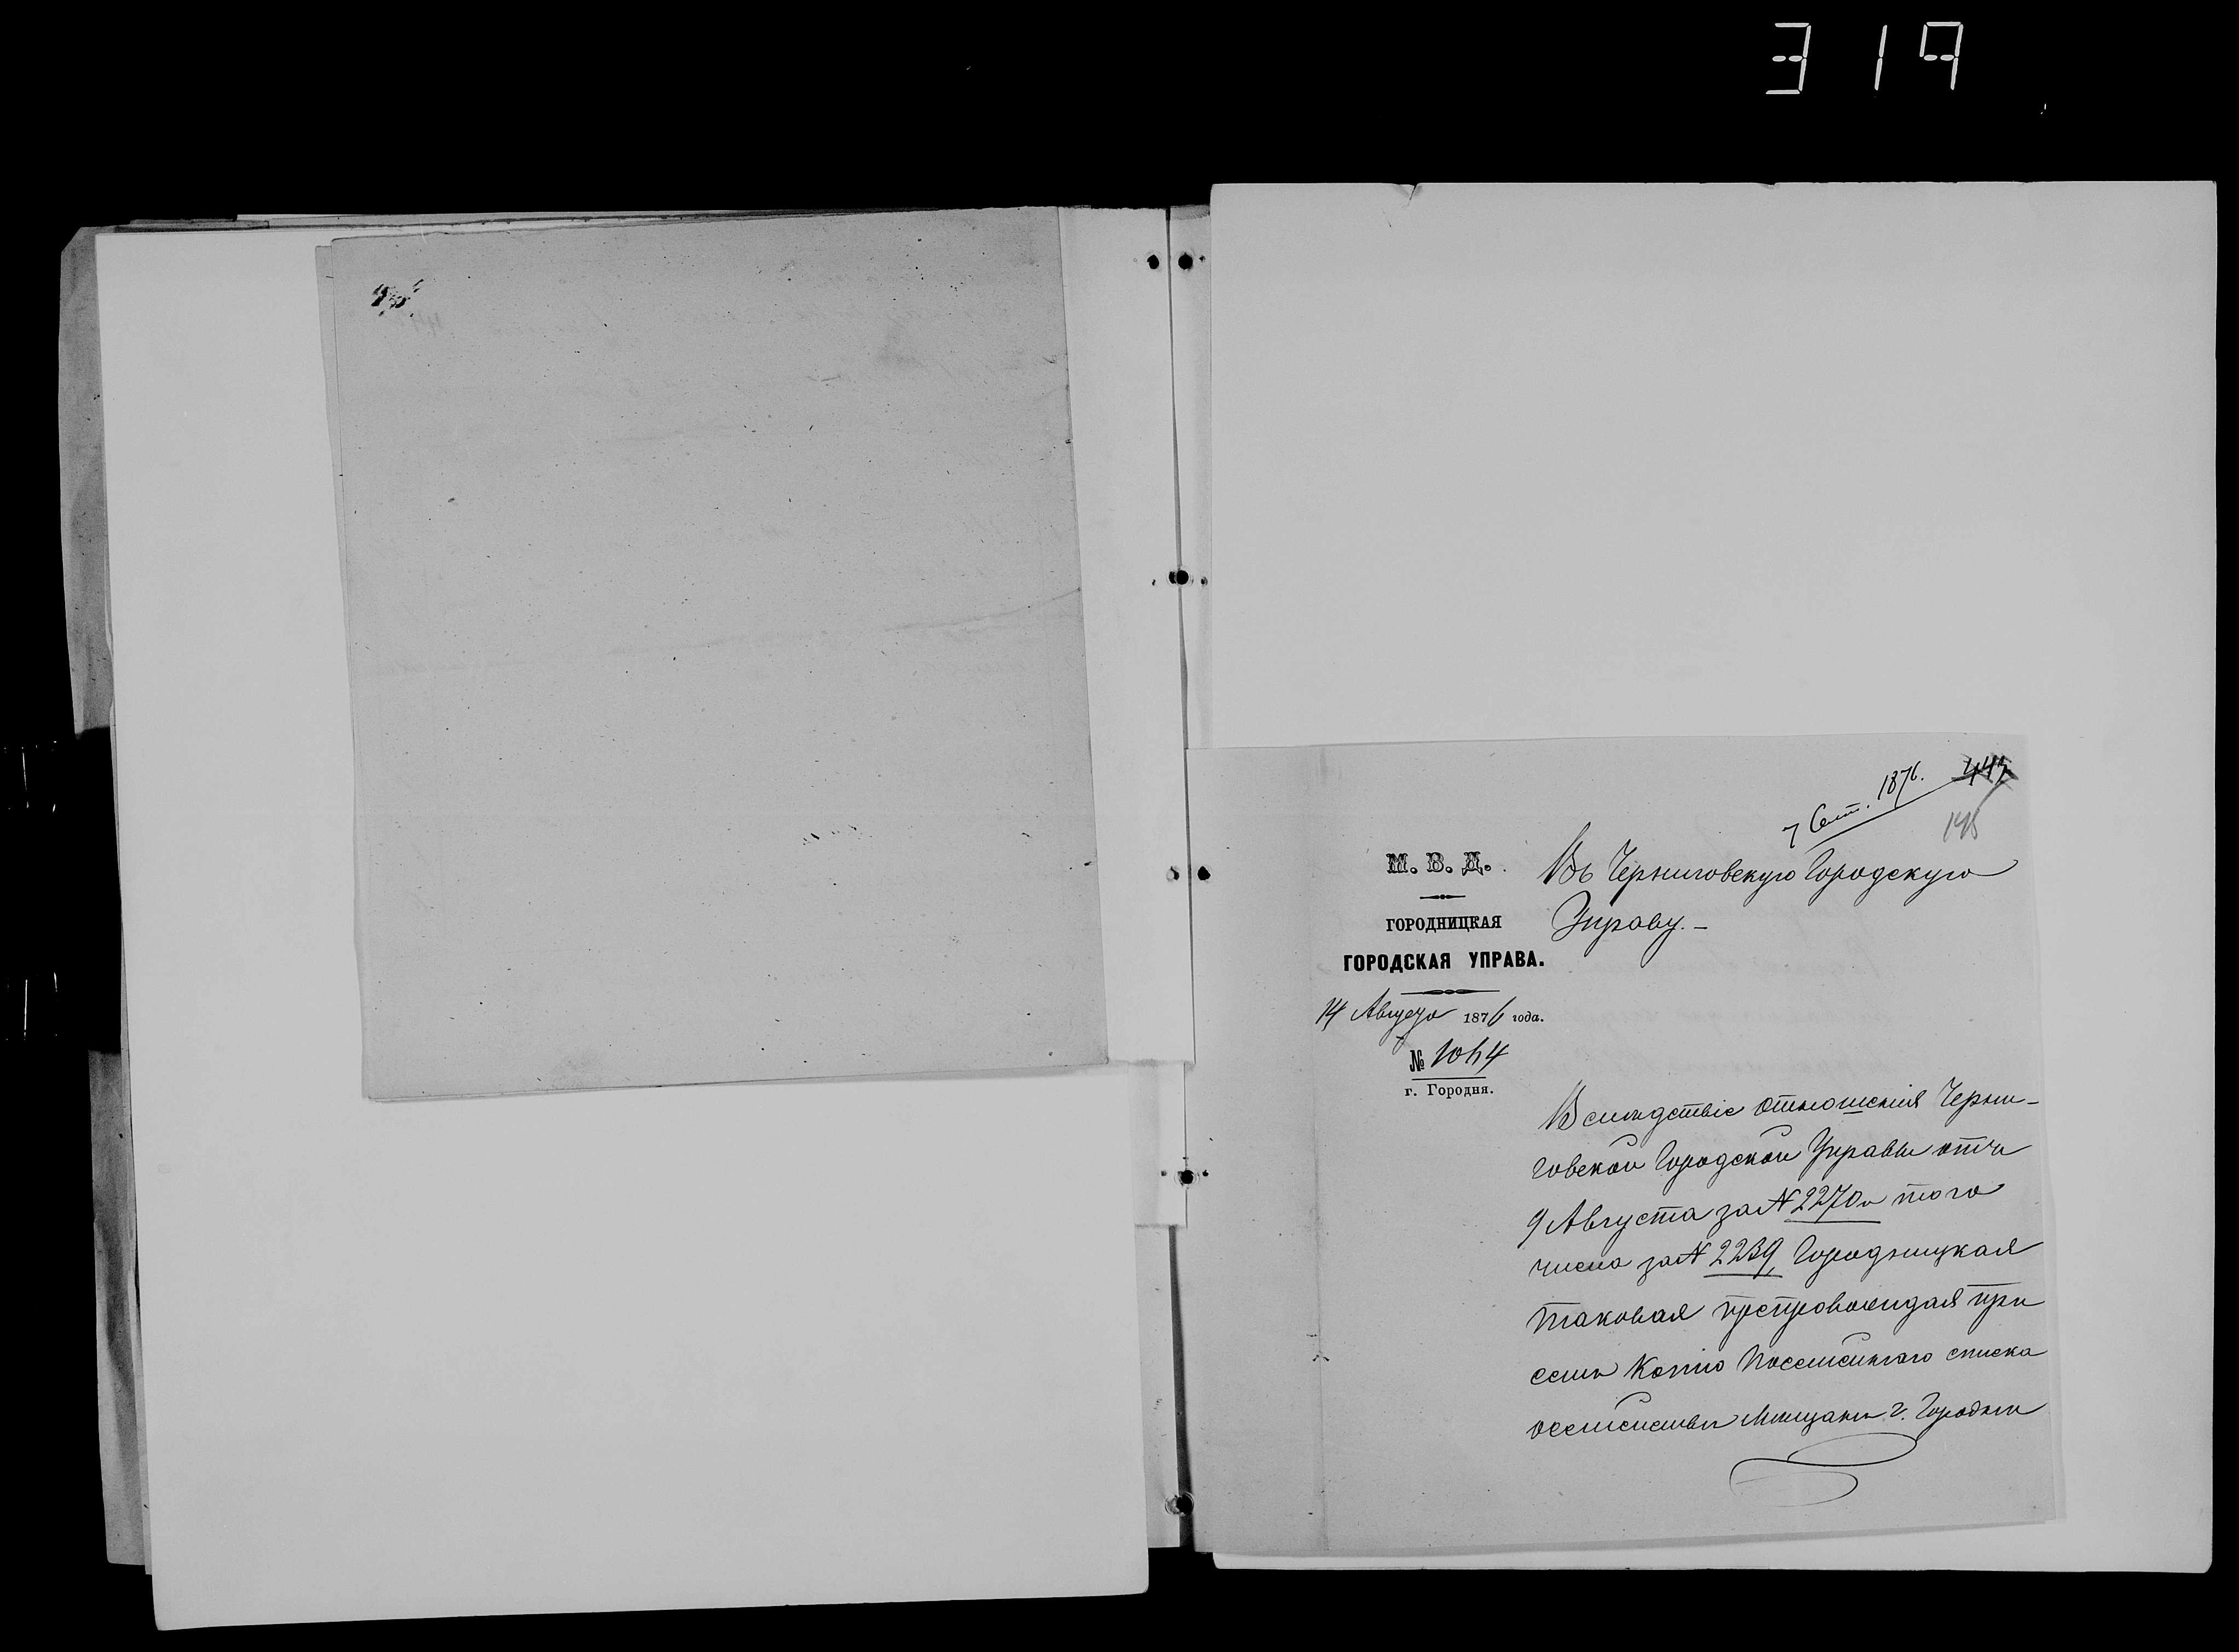 319
7 Сент. 1876.
445
145
М. В. Д.
ГОРОДНИЦКАЯ
ГОРОДСКАЯ УПРАВА.
14 Августа 1876 года.
№ 1064
г. Городня.
Въ Черниговскую Городскую
Управу. –
Вслѣдствіе отношенія Черни-
говской Городской Управы отъ
9 Августа за № 2270 и того
числа за № 2239, Городницкая
таковая препровождая при
семъ Копію Посемейнаго списка
мѣщанъ г. Городни